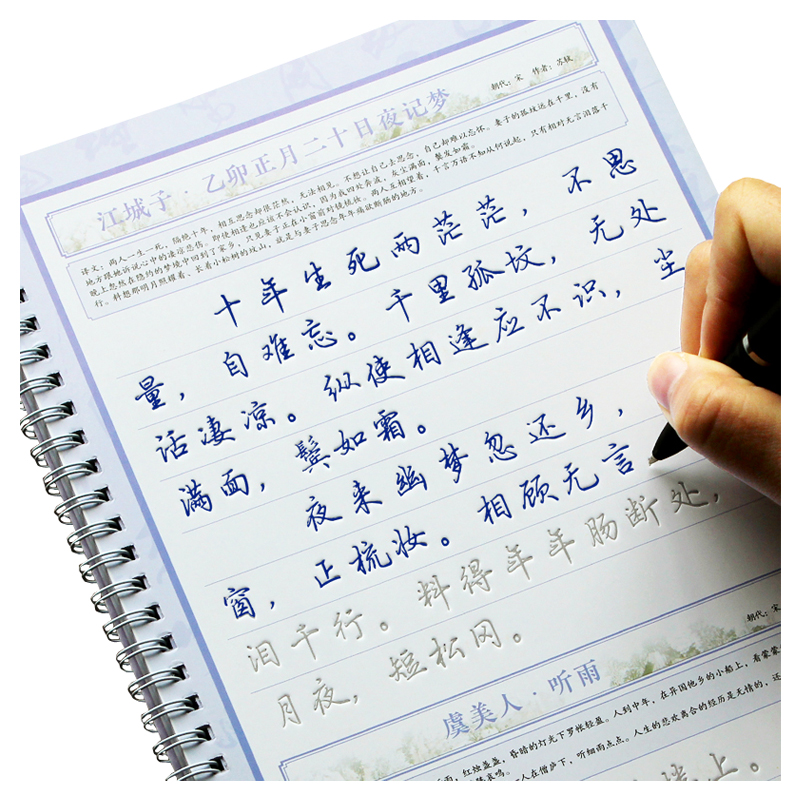 江城子·乙卯正月二十日夜记梦
朝代：宋 作者：苏轼
译文：两人一生一死，隔绝十年，相互思念却很茫然，无法相见。不想让自己去思念，自己却难以忘怀。妻子的孤坟远在千里，没有
地方跟她诉说心中的凄凉悲伤。即使相逢也应该不会认识，因为我四处奔波，灰尘满面，鬓发如霜。
晚上忽然在隐约的梦境中回到了家乡，只见妻子正在小窗前对镜梳妆。两人互相望着，千言万语不知从何说起，只有相对无言泪落千
行。料想那明月照耀着、长着小松树的坟山，就是与妻子思念年年痛欲断肠的地方。
十年生死两茫茫，不思
量，自难忘。千里孤坟，无处
话凄凉。纵使相逢应不识，尘
满面，鬓如霜。
夜来幽梦忽还乡，
窗，正梳妆。相顾无言
泪千行。料得年年肠断处，
月夜，短松冈。
虞美人·听雨
朝代：宋
雨，红烛盏盏，昏暗的灯光下罗帐轻盈。人到中年，在异国他乡的小船上，看蒙蒙
一人在僧庐下，听细雨点点。人生的悲欢离合的经历是无情的，还
楼上。